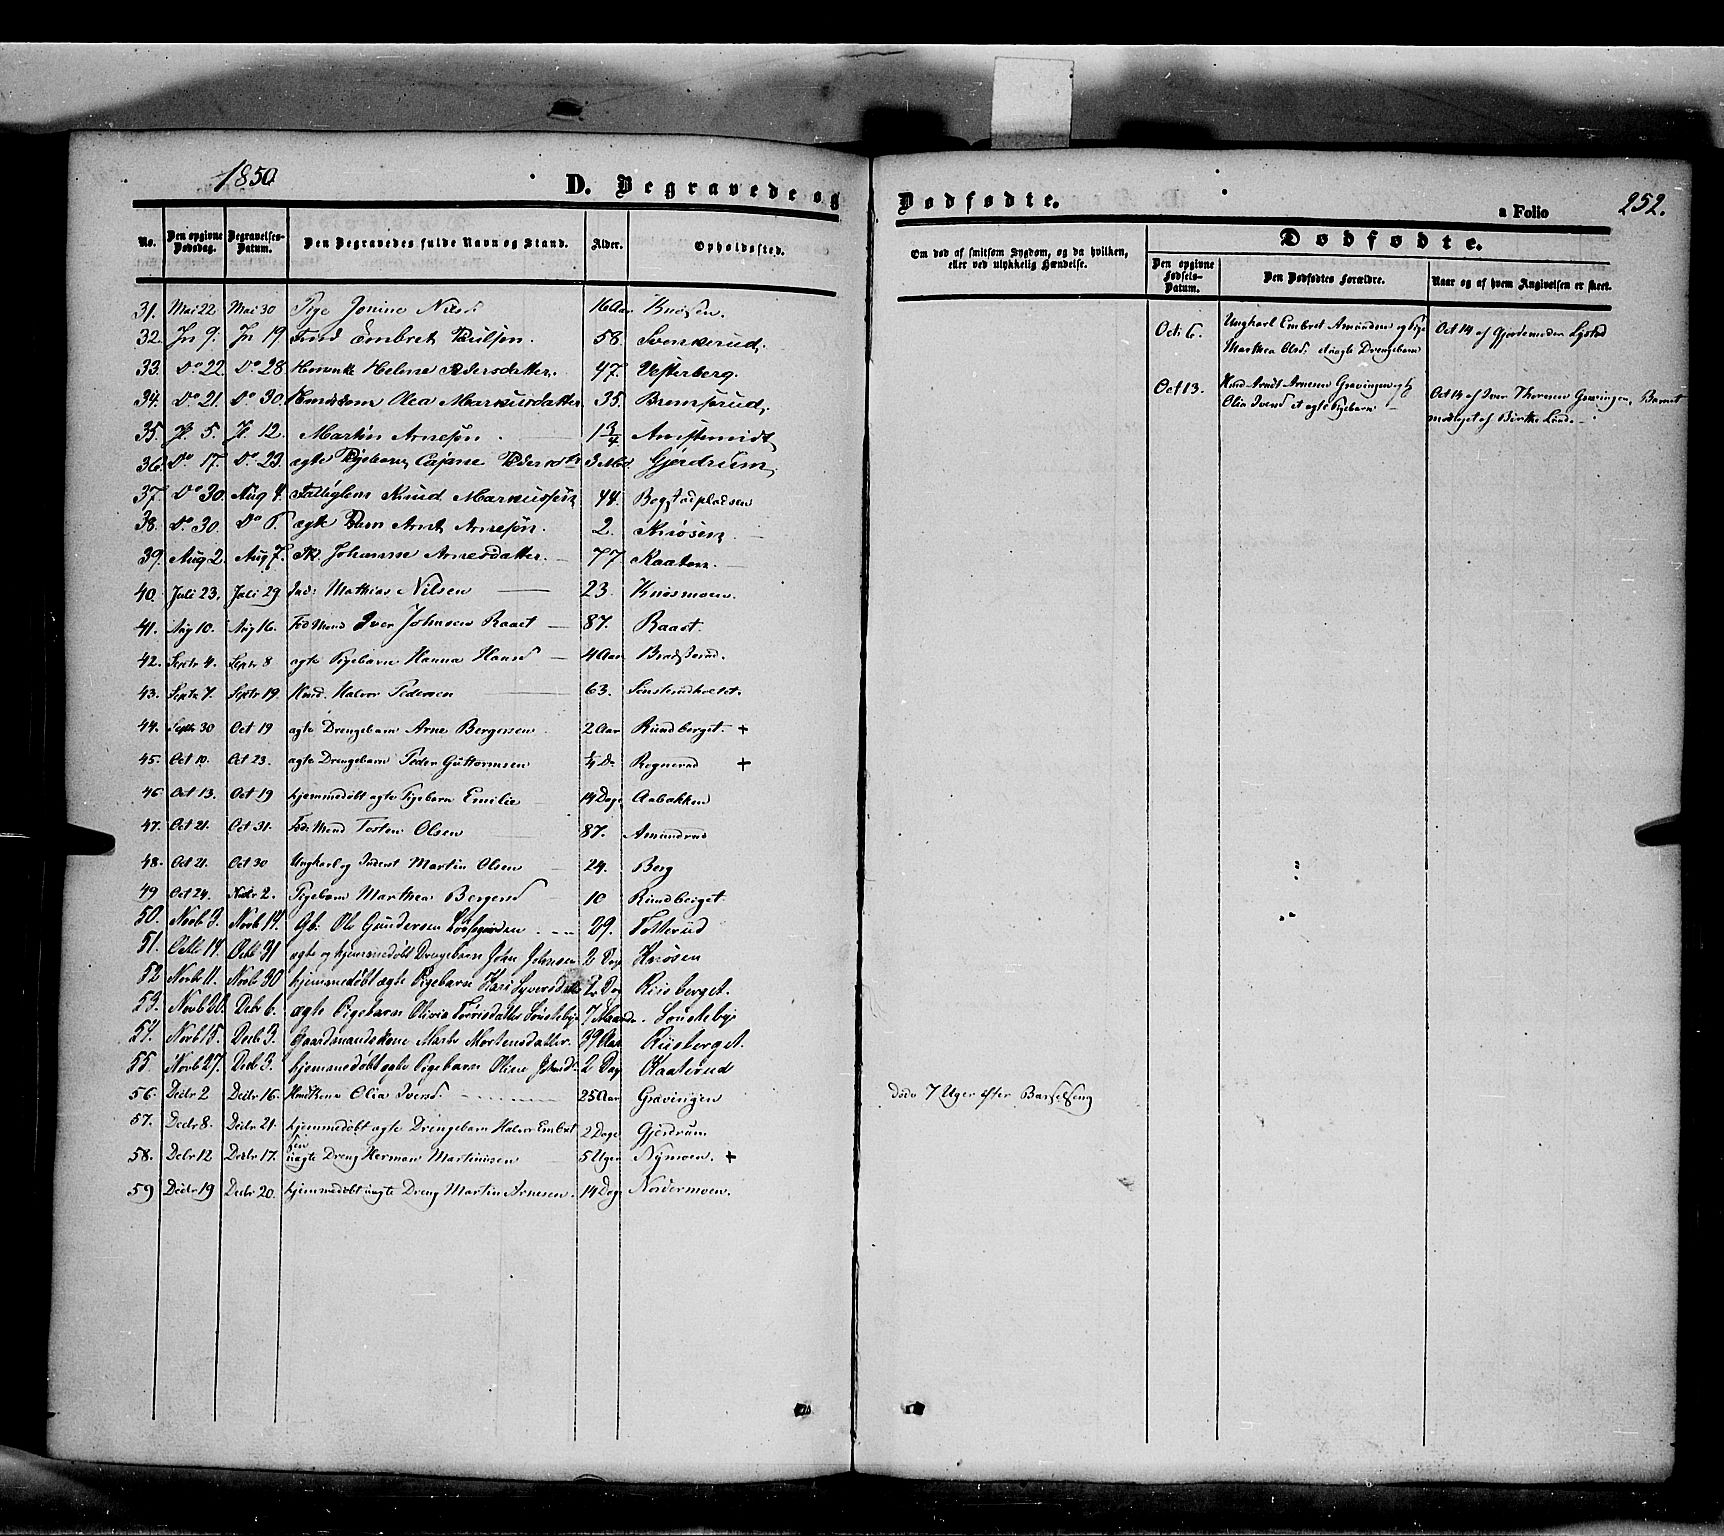 1850
D. Begravede og Dødfødte.
a Folio 252.
No. Den opgivne Dødsdag. Begravelses-Datum. Den Begravedes fulde Navn og Stand. Alder. Opholdssted.
Om død af smitsom Sygdom, og da hvilken, eller ved ulykkelig Hændelse.
Dødfødte.
Den opgivne Fødsels-Datum. Den Dødfødtes Forældre. Naar og af hvem Angivelsen er skeet.
31. Mai 22 Mai 30 Pige Jonine Nilsd 16 Aar Knøsen.
32. Jn 9. Jn 19 Embret Paulsen. 58. Svenkerud.
33. Do 22. Do 28 Helene Pedersdatter. 47. Vesterberg.
34. Do 21. Do 30. Olea Markusdatter 35. Bremsrud.
35. Jl. 5. Jl. 12. Martin Arnesøn 1 3/4
36. Do 17. Do 23. ægte Pigebarn Cajane Pedersdtr 3 Md Gjørdrum.
37. Do 30. Aug 4. Knud Markussen 44. Bogstadpladsen
38. Do 30. Do 6. ægte Barn Arnt Arnesøn. 2. Knøsen
39. Aug 2. Aug 7. Johanne Arnesdatter. 77 Kaaten.
40. Juli 23. Juli 29 Ind: Mathias Nilsen 23. Knøsmoen.
41. Aug 10. Aug 16. Fød Mand Iver Johnsen Raaet 87. Raaet.
42. Septr 4. Septr 8 ægte Pigebarn Hanna Hansd 4 Aar
43. Septr 7. Septr 19. Halvor Pedersen 63.
44. Septr 30 Oct 19 ægte Drengebarn Arne Bergersen 2 Aar Rundberget. +
45. Oct 10. Oct 23. ægte Drengebarn Peder Guttormsen ¼ Do Rognerud +
46 Oct 13. Oct 19 hjemmedøbt ægte Pigebarn Emilie 14 Dage Aabakken
47. Oct 21. Oct 31. Fød: Mand Tosten Olsen 87. Amundrud
48. Oct 21. Oct 30 Ungkarl og Inderst Martin Olsen 24. Berg
49 Oct 24. Novbr 2. Pigebarn Marthea Bergersd 10 Rundberget
50. Novb 3. Novb 14. Gb: Ole Gundersen 29. Totterud
51. Octb 14. Octb 31 ægte og hjemmedøbt Drengebarn John Johnsen 2 Dage Knøsen
52 Novb 11. Novb 30 hjemmedøbt ægte Pigebarn Kari Syversd 2 Riisberget.
53. Novb 20. Decb 6. ægte Pigebarn Olivia Torrisdatter Sønsteby 7 Maaneder. Sønsteby
54. Novb 15. Decb 3. Gaardmandskone Marte Mortensdatter. 39 Aar Riisberget.
55 Novb 27. Decb 3. hjemmedøbt ægte Pigebarn Oline Johnsd 2 Dage Kaaterud
56. Decbr 2 Decbr 16. Olia Iversd 25 Aar Gravingen døde 7 Uger efter Barselseng
57. Decbr 8. Decbr 21. hjemmedøbt ægte Drengebarn Halvor Embret 2 Dage Gjørdrum
58. Decbr 12 Decbr 17. uægte Dreng Herman Martinusen 5 Uger Nymoen. +
59 Decbr 19 Decbr 20. hjemmedøbt uægte Dreng Martin Arnesen. 14 Dage Nordermoen.
Oct: 6. Ungkarl Embret Amundsen og Pige Oct 14 af Gjordemoder Lystad
Marthea Olsd: et uægte Drengebarn
Oct 13. Arndt Arnesen Gravingen og Oct 14 af Iver Thoresen Gravingen. Barnet
Olia Iversd et ægte Pigebarn modtaget af